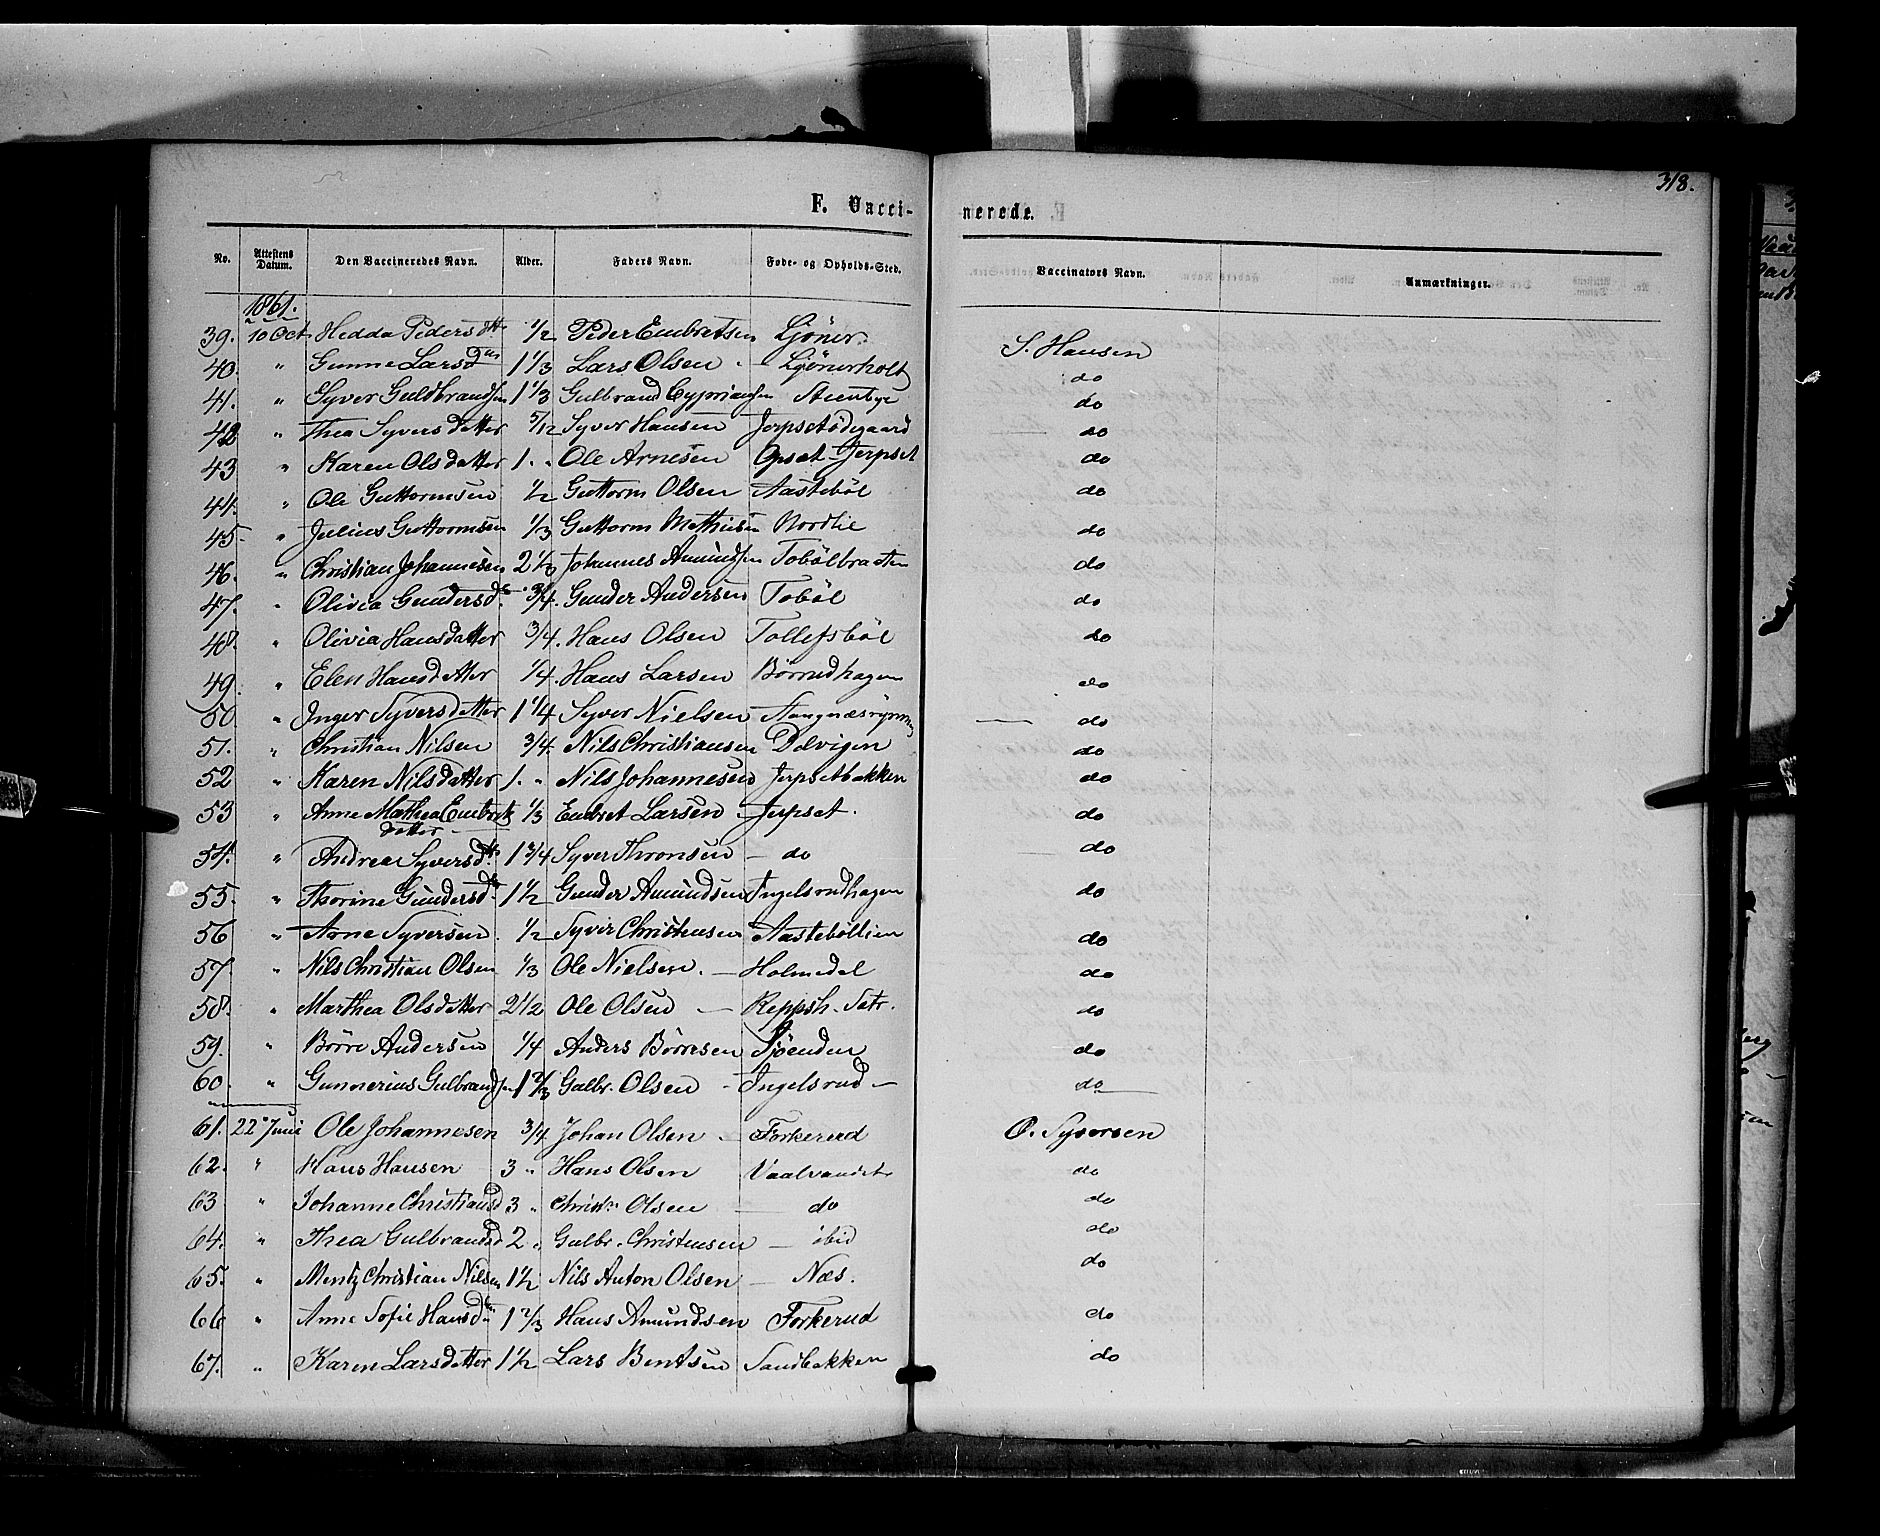 318.
F. Vacci- nerede.
No. Attestens Datum. Den Vaccineredes Navn. Alder. Faders Navn. Føde- og Opholds-Sted. Vaccinators Navn. Anmærkninger.
1861.
39. 10 Oct Hedda Pedersdtr 1/2 Peder Embretsen Ljöner. S. Hansen
40. " Gunne Larsd 1 1/3 Lars Olsen - Ljönerholt do
41. " Syver Guldbrandsen 1 1/3 Gulbrand Cypriansen Steenbye do
42 " Thea Syversdatter 5/12 Syver Hansen Jerpsetödegaard do
43 " Karen Olsdatter 1 " Ole Arnesen Opset-Jerpset do
44. " Ole Guttormsen 1/2 Guttorm Olsen Aastebøl do
45 " Julius Guttormsen 1/3 Guttorm Mathiesen Nordlie do
46. " Christian Johannesen 2 1/3 Johannes Amundsen Tobölbraaten do
47. " Olivia Gundersd. 3/4. Gunder Andersen Tobøl do
48. " Olivia Hansdatter 3/4. Hans Olsen Tollefsbøl do
49. " Elen Hansdatter 1/4 Hans Larsen Börrudhagen do
50 " Inger Syversdatter 1 1/4 Syver Nielsen do
51. " Christian Nilsen 3/4. Nils Christiansen Dølvigen do
52 " Karen Nilsdatter 1. " Nils Johannesen Jerpsetbakken do
53 " Anne Mathea Embrets 1/3 Embret Larsen Jerpset. do
datter
54. " Andrea Syversdtr 1 3/4 Syver Thronsen - do do
55. " Thorine Gundersd. 1 1/2 Gunder Amundsen Ingelsrudhagen do
56 " Arne Syversen. 1/2 Syver Christensen Aastebøllien do
57. " Nils Christian Olsen 1/3 Ole Nielsen. - Holmedal do
58. " Marthea Olsdatter 2 1/2 Ole Olsen - Reppsh. Sætr. do
59. " Börre Andersen 1/4 Anders Börresen Sjöenden do
60. " Gunnerius Gulbrandsen 1 2/3 Gulbr. Olsen - Ingelsrud - do
61. 22 Juni Ole Johannesen 3/4 Johan Olsen - Forkerud O. Syversen
62. " Hans Hansen 3 " Hans Olsen Vaalvandet do
63 " Johanne Christiansd 3 " Christ. Olsen - do do
64. " Thea Gulbrandsd 2 " Gulbr. Christensen - ibid do
65. " Mentz Christian Nilsen 1 1/2 Nils Anton Olsen - Næs. do
66 " Anne Sofie Hansd 1 2/3 Hans Amundsen Forkerud do
67. " Karen Larsdatter 1 1/2 Lars Bentsen Sandbakken do